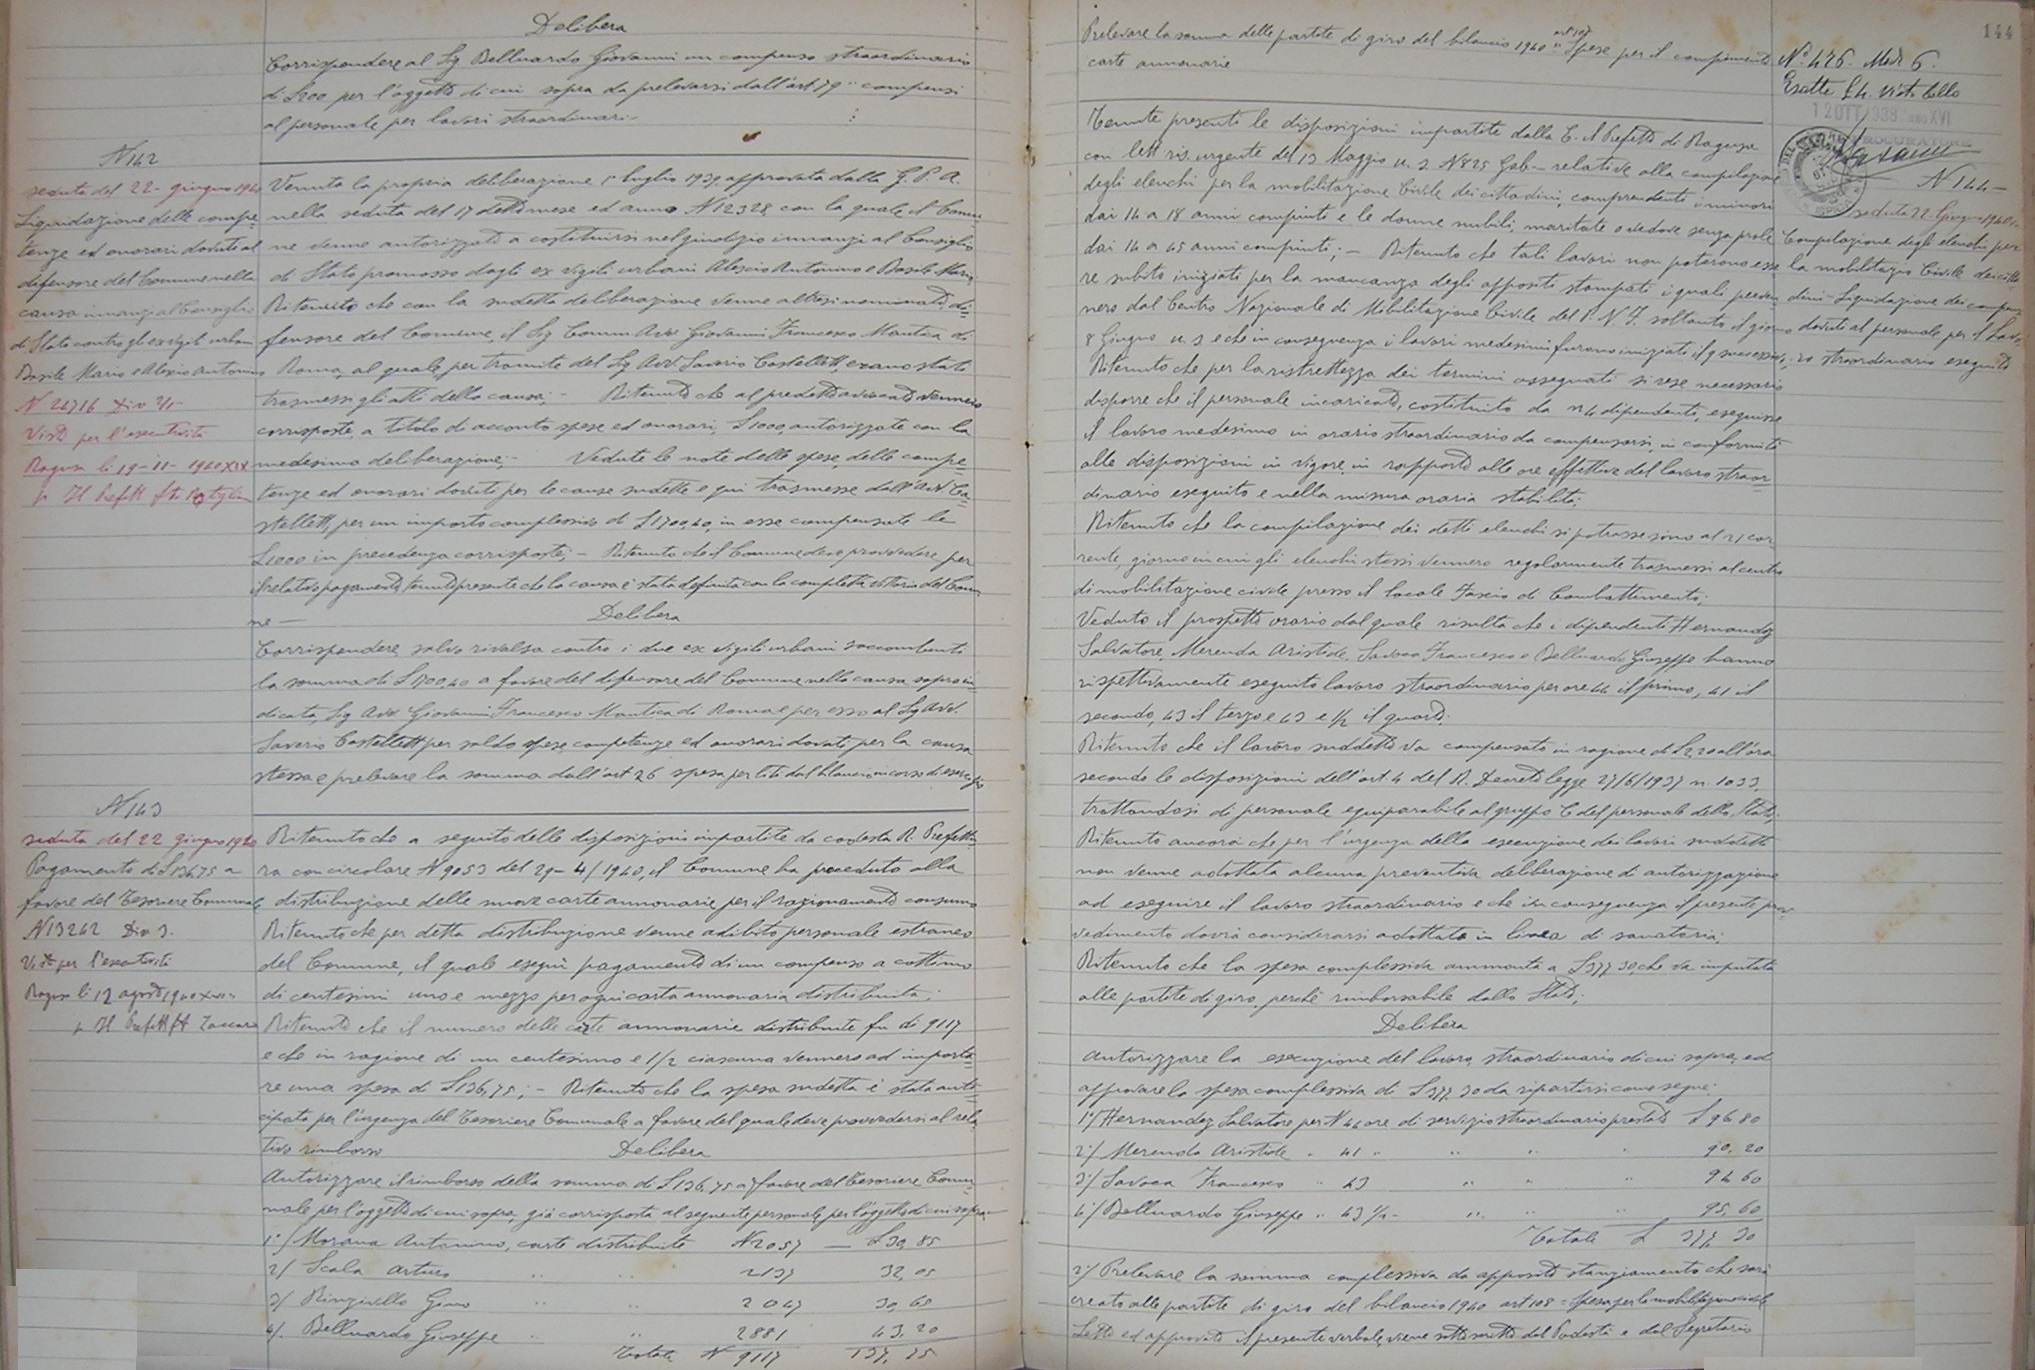 Delibera
Corrispondere al Sig Belluardo Giovanni un compenso straordinario
di £ 200 per l'oggetto di cui sopra da prelevarsi dall'art 79 " compensi
al personale per lavori straordinari -
N 142
seduta del 22 - giugno 1940
Liquidazione delle compe=
tenze ed onorari dovuti al
difensore del Comune nella
causa innanzi al Consiglio
di Stato contro gli ex vigili urbani
Basile Mario e Alescio Antonino
N 26716 Div 2/1 -
Visto per l'esecutività
Ragusa li 19 - 11 - 1940 XIX
p. Il Prefetto
Venuta la propria deliberazione 1° luglio 1939 approvata dalla G. P. A.
nella seduta del 17 detto mese ed anno N 12328 con la quale il Comu=
ne venne autorizzato a costituirsi nel giudizio innanzi al Consiglio
di Stato promosso dagli ex vigili urbani Alescio Antonino e Basile Mario,
Ritenuto che con la sudetta deliberazione venne altresì nominato di=
fensore del Comune, il Sig Comm Avv Giovanni Francesco Mantica di
Roma, al quale per tramite del Sig Avv Saverio Castelletti, erano stati
trasmessi gli atti della causa; - Ritenuto che al predetto avvocato vennero
corrisposte, a titolo di acconto spese ed onorari, £ 1000, autorizzate con la
medesima deliberazione; - Vedute le note delle spese, delle compe=
tenze ed onorari dovuti per le cause sudette e qui trasmesse dall'Avv. Ca=
stelletti, per un importo complessivo di £ 1700,40, in esse compensate le
£ 1000 in precedenza corrisposte; - Ritenuto che il Comune deve provvedere per
il relativo pagamento, tenuto presente che la causa è stata definita con la completa vittoria del Comu=
ne - Delibera
Corrispondere, salvo rivalsa contro i due ex vigili urbani soccombenti
la somma di £ 1700,40 a favore del difensore del Comune nella causa sopra in=
dicata, Sig Avv Giovanni Francesco Mantica di Roma e per esso al Sig Avv.
Saverio Castelletti per saldo spese competenze ed onorari dovuti per la causa
stessa e prelevare la somma dall'art 26 spesa per liti dal bilancio in corso di esercizio
N 143
seduta del 22 giugno 1940
Pagamento di £ 136,75 a
favore del Tesoriere Comunale
N 13262 Div 3.
Visto per l'esecutività
Ragusa li 12 agosto 1940 XVIII
p. Il Prefetto ft Zaccara
Ritenuto che a seguito delle disposizioni impartite da codesta R. Prefettu
ra con circolare N 9053 del 29 - 4/1940, il Comune ha proceduto alla
distribuzione delle nuove carte annonarie per il razionamento consumo
Ritenuto che per detta distribuzione venne adibito personale estraneo
del Comune, il quale eseguì pagamento di un compenso a cottimo
di centesimi uno e mezzo per ogni carta annonaria distribuita;
Ritenuto che il numero delle carte annonarie distribuite fu di 9117
e che in ragione di un centesimo e 1/2 ciascuna vennero ad importa=
re una spesa di £ 136,75; - Ritenuto che la spesa sudetta è stata anti=
cipata per l'urgenza dal Tesoriere Comunale a favore del quale deve provvedersi al rela
tivo rimborso Delibera
Autorizzare il rimborso della somma di £ 136,75 a favore del Tesoriere Comu=
nale per l'oggetto di cui sopra, già corrisposta al seguente personale per l'oggetto di cui sopra
1°/ Morana Antonino, carte distribuite N 2057 — £ 30,85
2/ Scala Arturo " " 2137 32,05
3/ Ringivillo Gino " " 2047 30,65
4/. Belluardo Giuseppe " " 2881 43,20
Totale N 9117 137,75
144
Prelevare la somma delle partite di giro del bilancio 1940 art 107 " Spese per il compimento
carte annonarie
N° 426. Mod 6.
Esatte £ 4. visto bollo
12 OTT 1938 Anno XVI
PROCURATORE
N 144 -
seduta 22 Giugno 1940
Compilazione degli elenchi per
la mobilitazio Civile dei citta
dini - Liquidazione dei compensi
dovuti al personale per il lavo
ro straordinario eseguito
Tenute presenti le disposizioni impartite dalla E. il Prefetto di Ragusa
con lett ris. urgente del 13 Maggio u. s. N 825 Gab - relative alla compilazione
degli elenchi per la mobilitazione Civile dei cittadini, comprendenti i minori
dai 14 a 18 anni compiuti e le donne nubili, maritate o vedove senza prole
dai 14 a 45 anni compiuti; - Ritenuto che tali lavori non poterono esse
re subito iniziati per la mancanza degli appositi stampati i quali perven
nero dal Centro Nazionale di Mobilitazione Civile del P. N. F. soltanto il giorno
8 Giugno u. s. e che in conseguenza i lavori medesimi furono iniziati il 9 successivo;
Ritenuto che per la ristrettezza dei termini assegnati si rese necessario
disporre che il personale incaricato, costituito da n 4 dipendenti, eseguisse
il lavoro medesimo in orario straordinario da compensarsi, in conformità
alle disposizioni in vigore, in rapporto alle ore effettive del lavoro straor=
dinario eseguito e nella misura oraria stabilita;
Ritenuto che la compilazione dei detti elenchi si potrasse sino al 21 cor=
rente, giorno in cui gli elenchi stessi vennero regolarmente trasmessi al centro
di mobilitazione civile presso il locale Fascio di Combattimento;
Veduto il prospetto orario dal quale risulta che i dipendenti Hernandez
Salvatore, Merenda Aristide, Savoca Francesco e Belluardo Giuseppe hanno
rispettivamente eseguito lavoro straordinario per ore 44 il primo, 41 il
secondo, 43 il terzo e 43 e 1/2 il quarto.
Ritenuto che il lavoro suddetto va compensato in ragione di £ 2,20 all'ora
secondo le disposizioni dell'art. 4 del R. Decreto legge 27/6/1937 n. 1033,
trattandosi di personale equiparabile al gruppo C del personale dello Stato;
Ritenuto ancora che per l'urgenza della esecuzione dei lavori suddetti
non venne adottata alcuna preventiva deliberazione di autorizzazione
ad eseguire il lavoro straordinario e che in conseguenza il presente prov=
vedimento dovrà considerarsi adottato in linea di sanatoria;
Ritenuto che la spesa complessiva ammonta a £ 377,30, che va imputata
alle partite di giro, perché rimborsabile dallo Stato;
Delibera
Autorizzare la esecuzione del lavoro straordinario di cui sopra, ed
approvare la spesa complessiva di £ 377,30 da ripartirsi come segue:
1°/ Hernandez Salvatore per N 44 ore di servizio straordinario prestato £ 96 80
2°/ Merenda Aristide " 41 " " " " 90,20
3°/ Savoca Francesco " 43 " " " 94 60
4°/ Belluardo Giuseppe " 43 1/2 - " " " 95,60
Totale £ 377, 30
2°/ Prelevare la somma complessiva da apposito stanziamento che sarà
creato alle partite di giro del bilancio 1940 art 108 = Spesa per la mobilitazione civile
Letto ed approvato il presente verbale, viene sottoscritto dal Podestà e dal Segretario